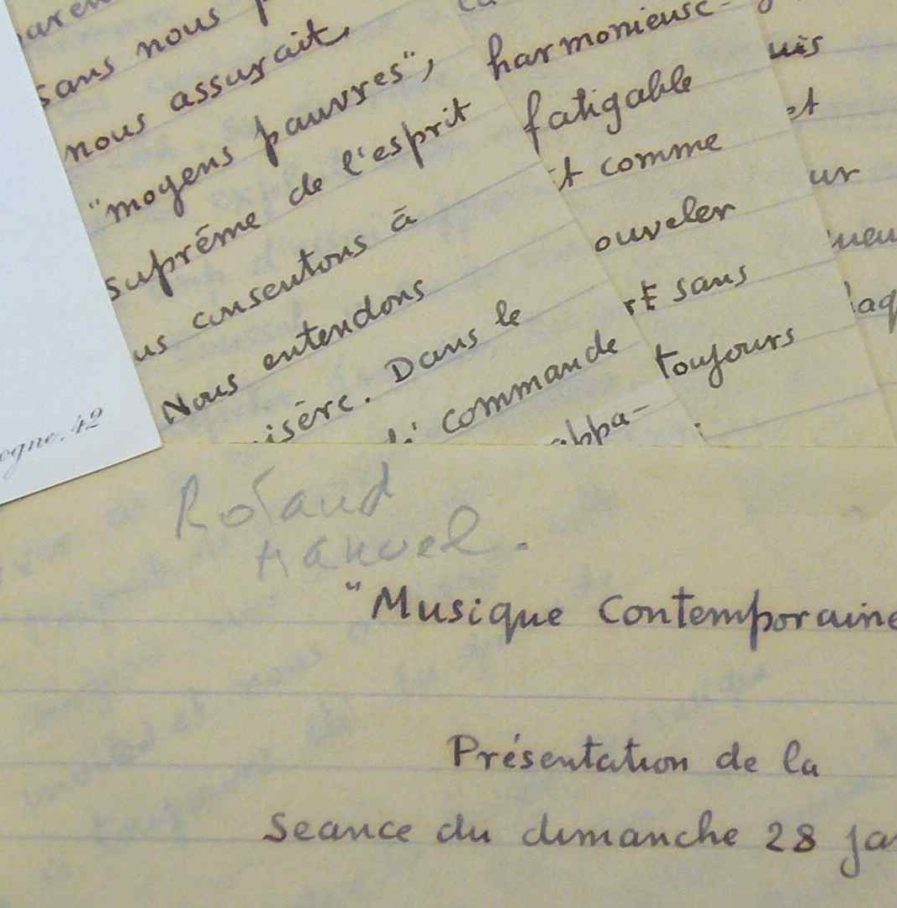 sans nous
nous assurait,
"moyens pauvres",
suprême de l'esprit
us consentons à
Nous entendons
isère. Dans le
commande
appa-
harmonieuse-
fatigable
t comme
ouveler
rt sans
toujours
uis
et
ur
ogne. 42
Roland
Manuel.
"Musique Contemporaine
Présentation de la
Seance du dimanche 28 ja